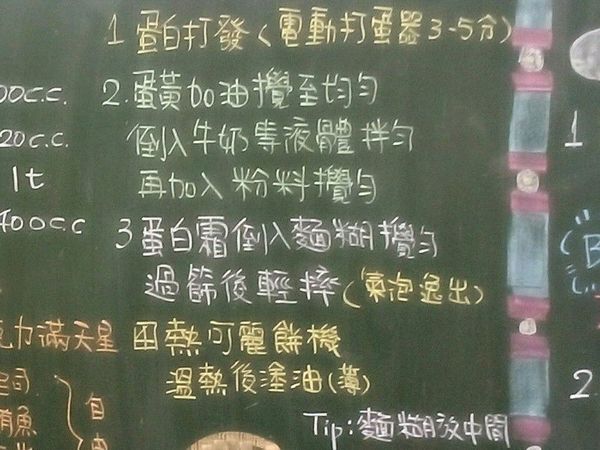 1 蛋白打發(電動打蛋器3-5分)
00c.c.
2.蛋黃加油攪至均勻
20c.c.
倒入牛奶等液體拌勻
1
1t
再加入粉料攪勻
400cc
3蛋白霜倒入麵糊攪勻
過篩後輕摔(氣泡逸出)
(B
力滿天星
田熱可麗餅機
溫熱後塗油(薄)
起司
鮪魚
自
2.
Tip:麵糊放中間